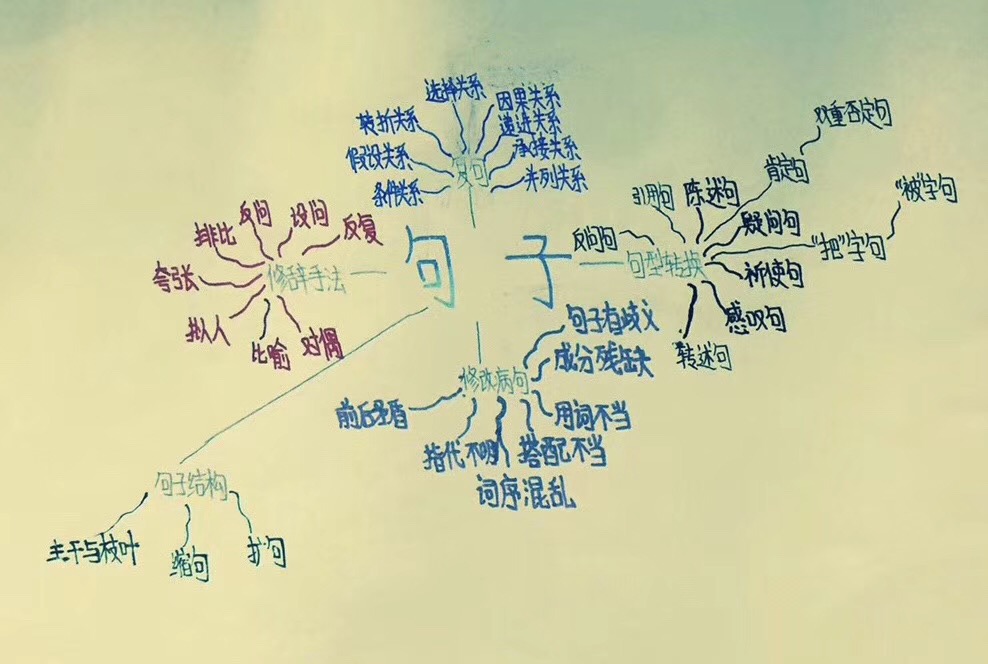 选择关系
因果关系
递进关系
转折关系
承接关系
假设关系
复句
并列关系
条件关系
双重否定句
肯定句
引用句
陈述句
"被"字句
疑问句
反问句
"把"字句
句型转换
祈使句
感叹句
转述句
反问
设问
反复
排比
夸张
修辞手法
拟人
比喻
对偶
句子
句子有歧义
成分残缺
修改病句
前后矛盾
用词不当
指代不明
搭配不当
词序混乱
句子结构
主干与枝叶
缩句
扩句